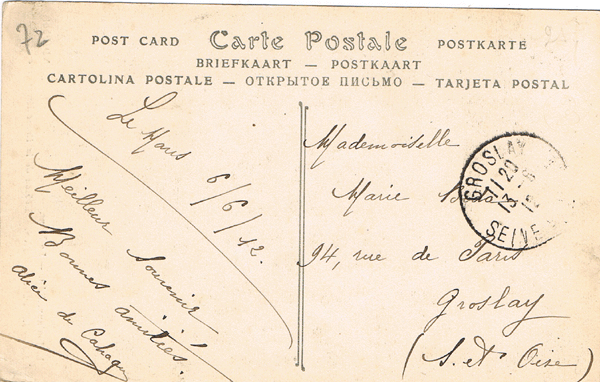 72
POST CARD Carte Postale POSTKARTE
BRIEFKAART — POSTKAART
CARTOLINA POSTALE — ОТКРЫТОЕ ПИСЬМО — TARJETA POSTAL
Le Mans
6/6/12.
Meilleur souvenir
Bonnes amitiés.
alice de
Mademoiselle
Marie
94, rue de Paris
Groslay
(S. et Oise)
GROSLAY
11 20
13 - 6
12
SEINE